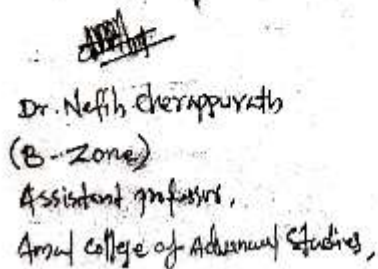 Dr. Nefih Cherappurath
(B-Zone)
Assistant professor,
Amal College of Advanced Studies,